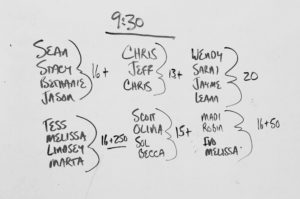 9:30
SEAN
STACY
BETHANIE
JASON
16+
CHRIS
JEFF
CHRIS
13+
WENDY
SARAI
JAYME
LEANN
20
TESS
MELISSA
LINDSEY
MARTA
16+250
SCOTT
OLIVIA
SOL
BECCA
15+
MADI
ROBIN
MELISSA
16+50